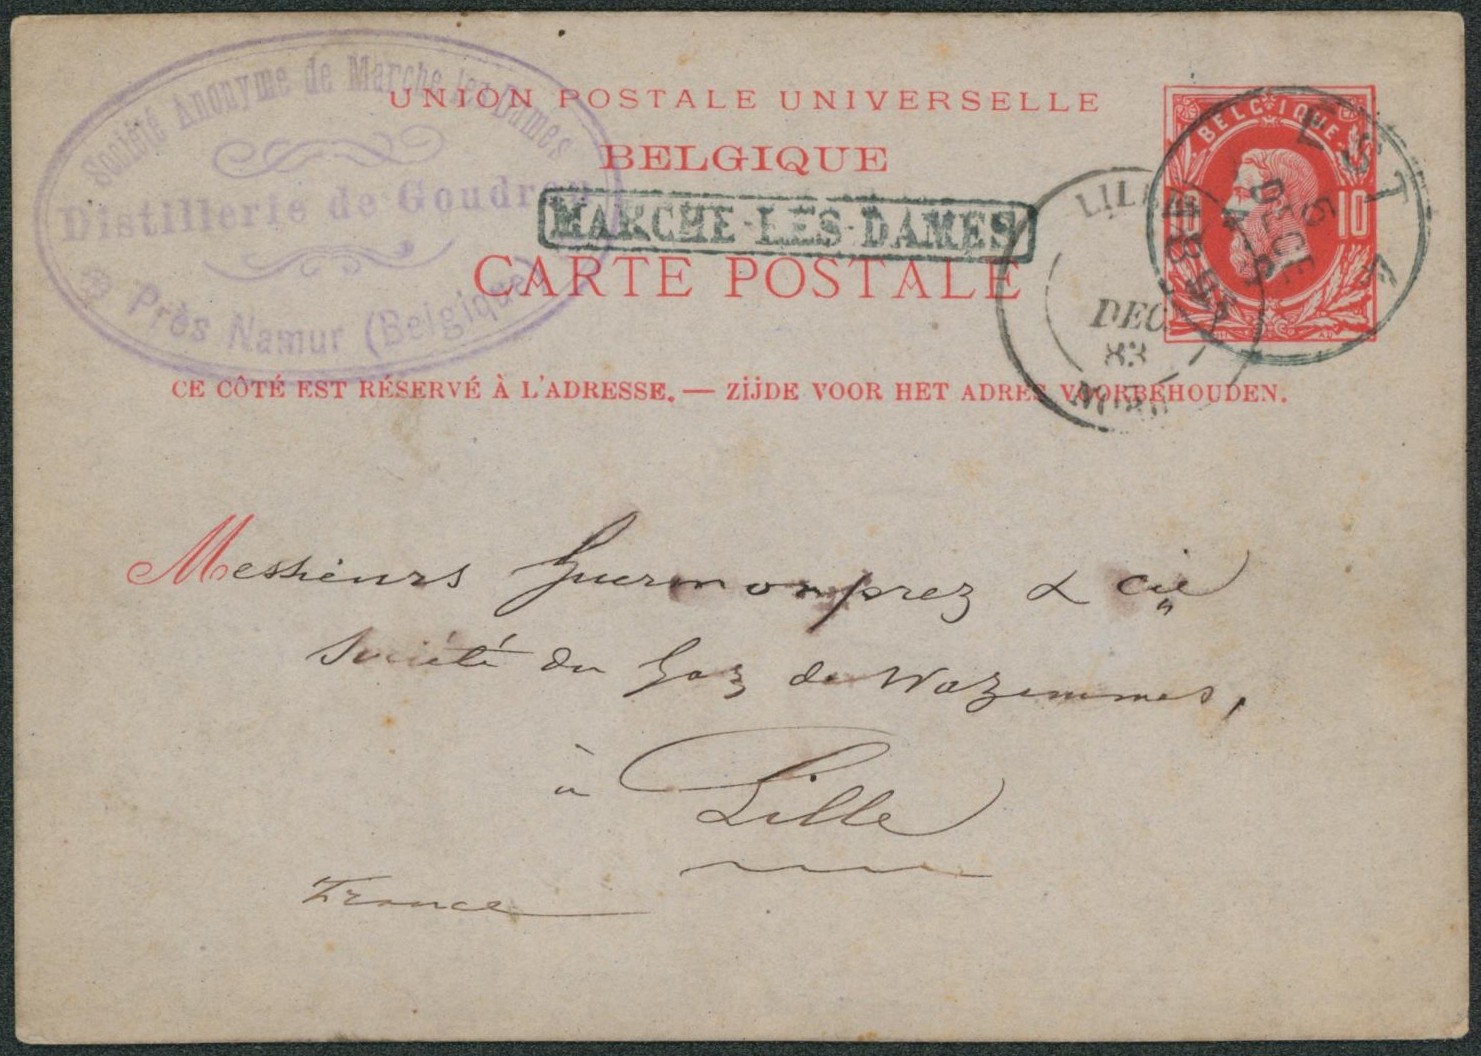 Société Anonyme de Marche les Dames
Distillerie de Goudron
Près Namur (Belgique)
UNION POSTALE UNIVERSELLE
BELGIQUE
MARCHE-LES-DAMES
CARTE POSTALE
BELGIQUE
10
EST
5
DECE
LILLE
DEC
83
NORD
CE CÔTÉ EST RÉSERVÉ À L'ADRESSE. — ZIJDE VOOR HET ADRES VOORBEHOUDEN.
Messieurs Guermonprez & Cie
Société du Gaz de Wazemmes,
à Lille
France